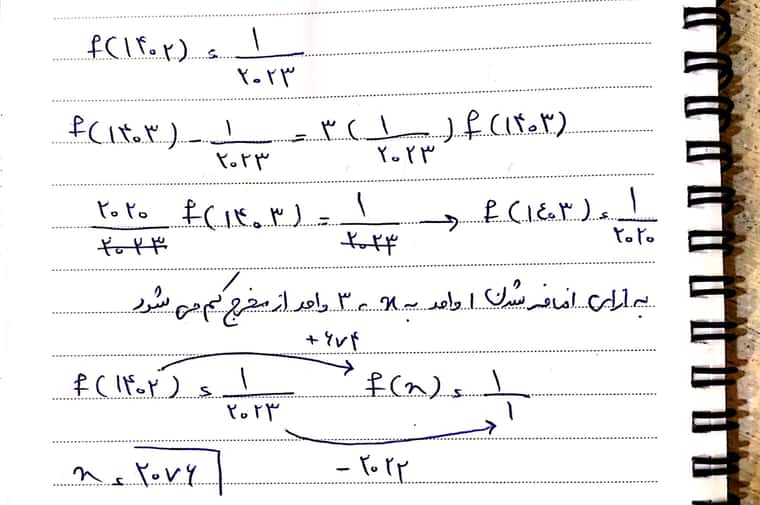 f(۱۴۰۲) = ۱/۲۰۲۳
f(۱۴۰۳) - ۱/۲۰۲۳ = ۳ (۱/۲۰۲۳) f(۱۴۰۳)
۲۰۲۰/۲۰۲۳ f(۱۴۰۳) = ۱/۲۰۲۳ → f(۱٤۰۳) = ۱/۲۰۲۰
به ازای اضافه شدن ۱ واحد به x ، ۳ واحد از مخرج کم می شود
+۶۷۴
f(۱۴۰۲) = ۱/۲۰۲۳ f(x) = ۱/۱
x = ۲۰۷۶ -۲۰۲۲